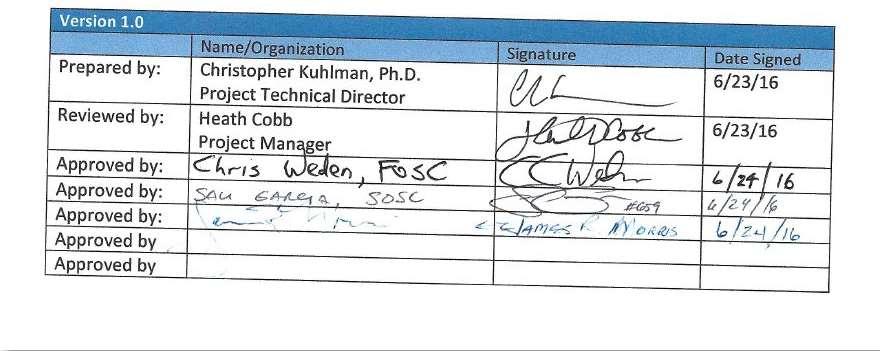 Version 1.0
Name/Organization Signature Date Signed
Prepared by: Christopher Kuhlman, Ph.D. 6/23/16
Project Technical Director
Reviewed by: Heath Cobb 6/23/16
Project Manager
Approved by: Chris Weden, FOSC CCWeden 6/24/16
Approved by: SAM GARCIA, SOSC #659 6/24/16
Approved by: James R MORRIS 6/24/16
Approved by
Approved by